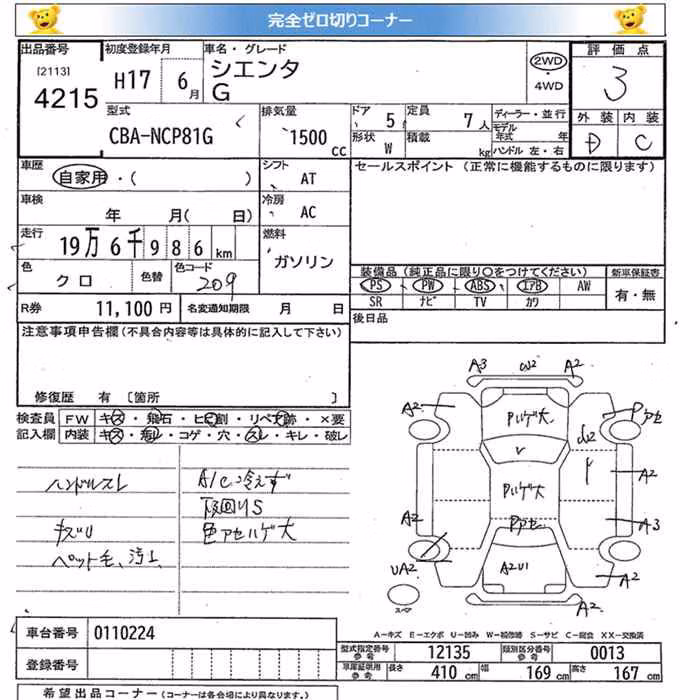 完全ゼロ切りコーナー
出品番号 初度登録年月 車名・グレード 評価点
[2113] 4215 H17 6月 シエンタ G 2WD ・ 4WD 3
外装 内装
D C
型式 排気量 ドア 5 定員 7人 ディーラー・並行
CBA-NCP81G 1500cc 形状 W 積載 kg モデル年式 年 ハンドル 左・右
車歴 自家用・( ) シフト AT
セールスポイント (正常に機能するものに限ります)
車検 年 月( 日) 冷房 AC
走行 19万6千986km 燃料 ガソリン
色 クロ 色替 色コード 209
装備品 (純正品に限り○をつけてください) 新車保証書
PS PW ABS エアB AW 有・無
SR ナビ TV カワ
R券 11,100円 名変通知期限 月 日
後日品
注意事項申告欄(不具合内容等は具体的に記入して下さい)
修復歴 有 [箇所 ]
検査員 FW キズ・飛石・ヒビ割・リペア跡・×要
記入欄 内装 キズ・汚レ・コゲ・穴・スレ・キレ・破レ
ハンドルスレ
キズU
ペット毛、汚レ
A/C冷えず
下回りS
色アセハゲ大
A3 W2 A2
A2 Pハゲ大 Pアセ
W2
A2
Pハゲ大
A2 Pアセ A3
UA2 A2U1 A2
スペア
A2
A－キズ E－エクボ U－凹み W－補修跡 S－サビ C－腐食 XX－交換済
車台番号 0110224
登録番号
型式指定番号 参考 12135 類別区分番号 参考 0013
車庫証明用 参考 長さ 410 cm 幅 169 cm 高さ 167 cm
希望出品コーナー (コーナーは各会場により異なります。)